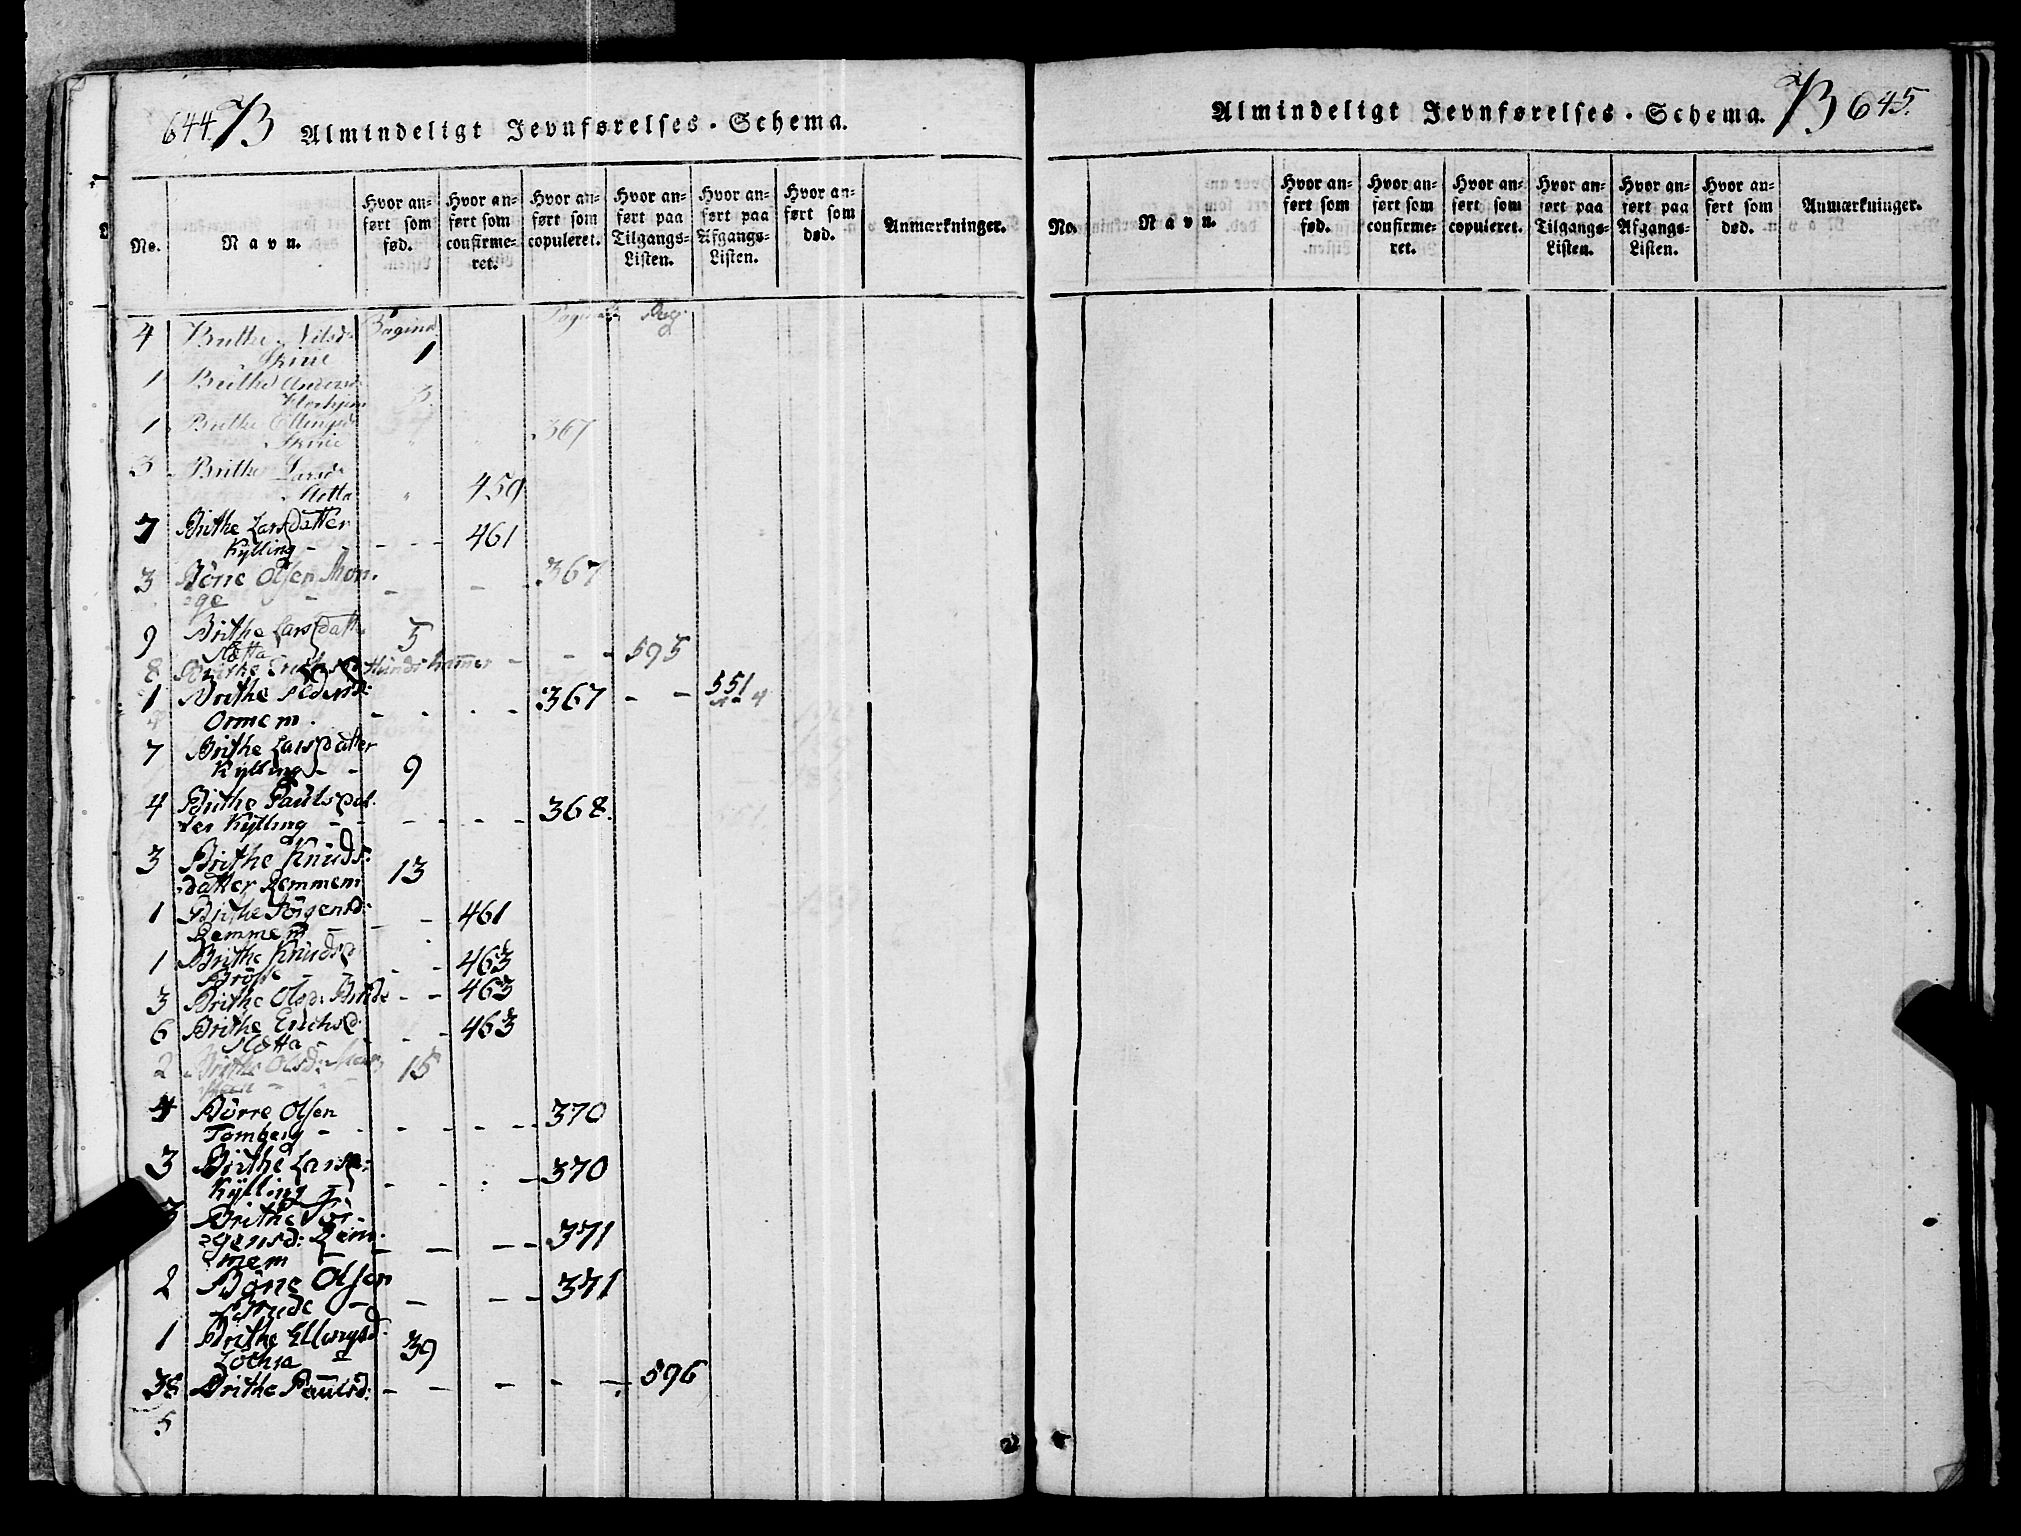 644. B Almindeligt Jevnførelses-Schema.
No.
Navn.
Hvor an-
ført som
fød.
Hvor an-
ført som
confirme-
ret.
Hvor an-
ført som
copuleret.
Hvor an-
ført paa
Tilgangs-
Listen.
Hvor an-
ført paa
Afgangs-
Listen.
Hvor an-
ført som
død.
Anmærkninger.
Pagina Pagina Pag.
4 Brithe Nilsd:
Skirie 1
1 Brithe Andersd:
3
1 Brithe Ellingsd:
Skirie " " 367
3 Brithe Larsd:
Sletta " 459
7 Brithe Larsdatter
Kylling - - - - - 461
3 Börre Olsen Mon-
=ge - - - 367
9 Brithe Larsdatte
Sletta 5 - - - 595
8 Brithe Erichsd:
1 Brithe Pedersd:
Ormem. - - - - 367 - - 551
7 Brithe Larsdatter
Kylling - - 9
4 Brithe Paulsdat-
ter Kylling - - - - - - 368.
3 Brithe Knuds-
datter Remmem 13
1 Brithe Jörgensd:
Remmem - - - 461
1 Brithe Knudsd:
- - 463
3 Brithe Olsd: Brude - - 463
6 Brithe Erichsd:
Sletta - - - 463
2 Brithe Olsd: 15
4 Börre Olsen
Tomberg - - - - - - 370
3 Brithe Larsd:
Kylling - - - : - 370
3 Brithe Jör-
=gensd: Rem-
=mem - - - - 371
2 Börre Olsen
Brude - - - - 371
1 Brithe Ellingsd:
39
38 Brithe Paulsd: - - - - - 596
5
Almindeligt Jevnførelses-Schema. B 645.
No.
Navn.
Hvor an-
ført som
fød.
Hvor an-
ført som
confirme-
ret.
Hvor an-
ført som
copuleret.
Hvor an-
ført paa
Tilgangs-
Listen.
Hvor an-
ført paa
Afgangs-
Listen.
Hvor an-
ført som
død.
Anmærkninger.